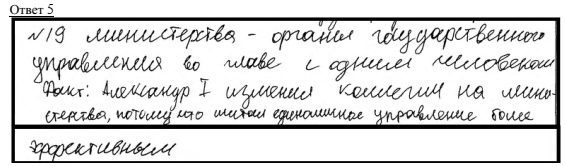 Ответ 5
№19 министерства - органы государственного
управления во главе с одним человеком
Факт: Александр I изменил коллегии на мини-
стерства, потому что считал единоличное управление более
эффективным